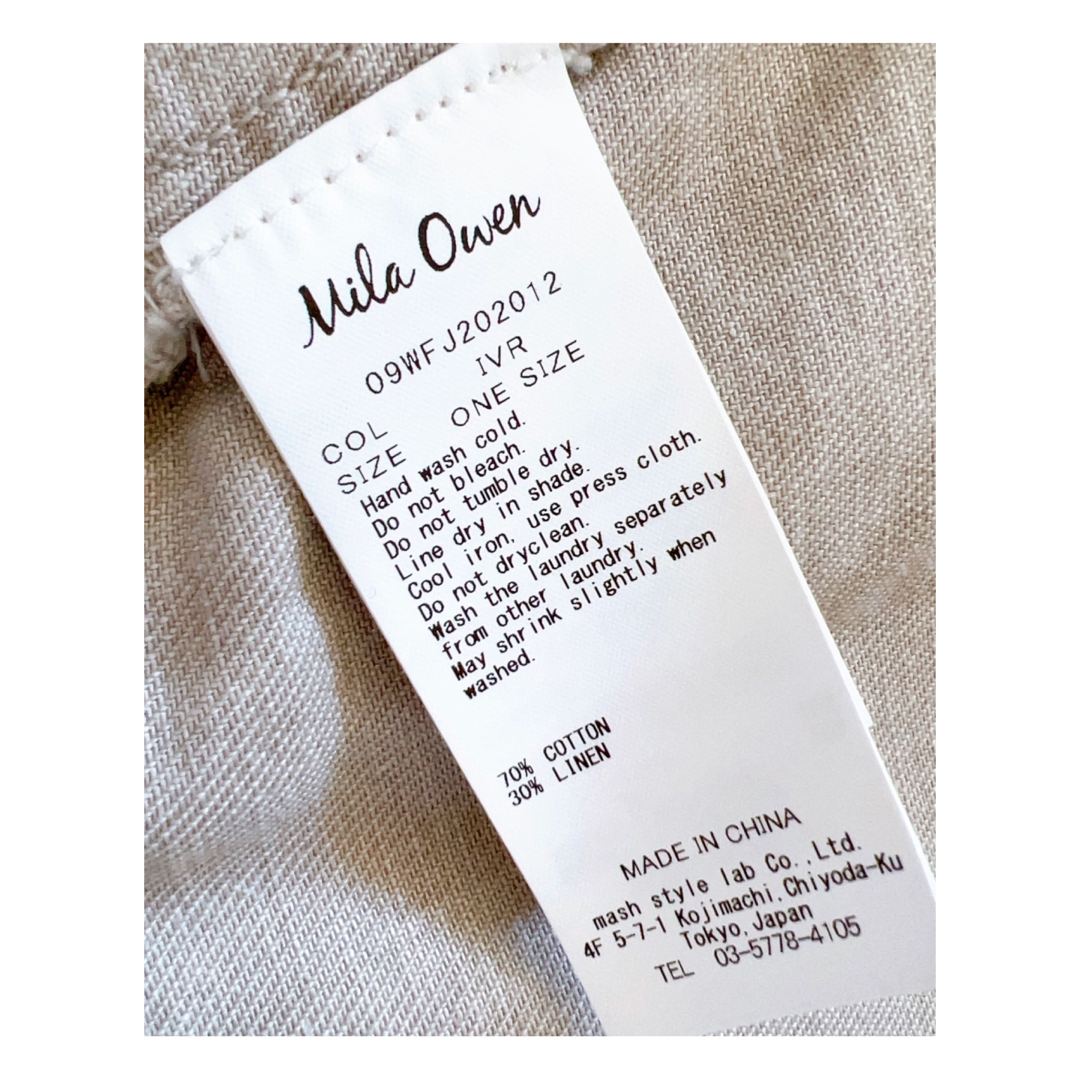 Mila Owen
09WFJ202012
COL IVR
SIZE ONE SIZE
Hand wash cold.
Do not bleach.
Do not tumble dry.
Line dry in shade.
Cool iron, use press cloth.
Do not dryclean.
Wash the laundry separately
from other laundry.
May shrink slightly when
washed.
70% COTTON
30% LINEN
MADE IN CHINA
mash style lab Co.,Ltd.
4F 5-7-1 Kojimachi,Chiyoda-Ku
Tokyo,Japan
TEL 03-5778-4105